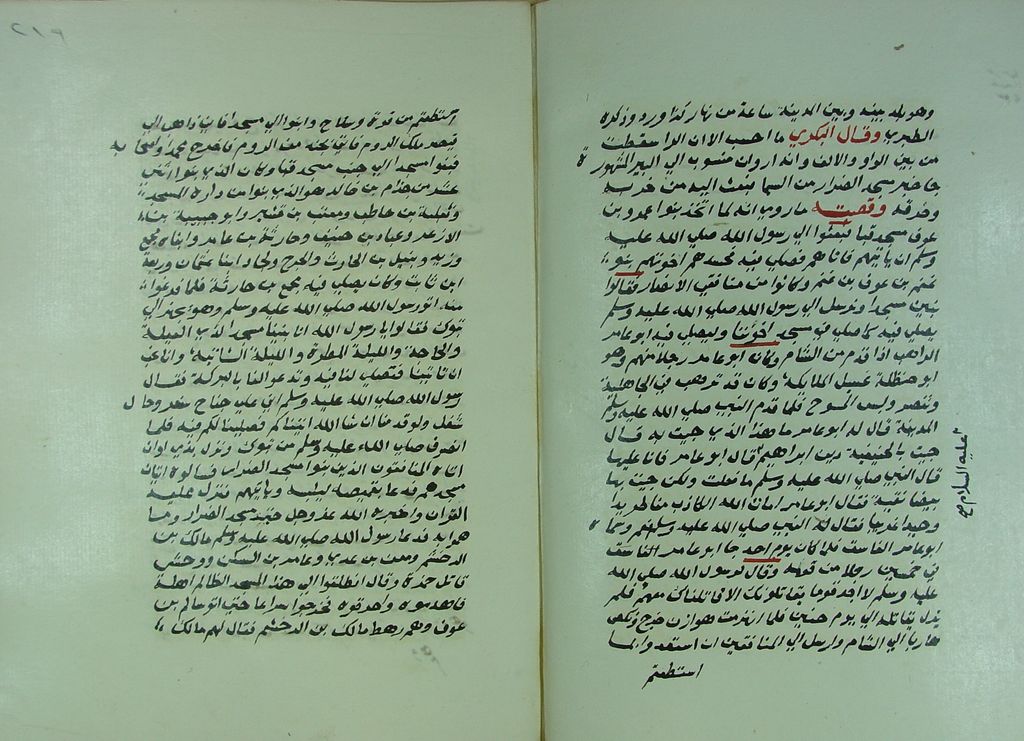 وهو بلد بينه وبين المدينة ساعة من نهار كذا ورد وذكره
الطبري وقال البكري ما احسب الا ان الراء سقطت
من بين الواو والالف وانه اروان منسوب الي البير المشهور
جا خبر مسجد الضرار من السما فبعث اليه من خربه
وحرقه وقصته ما روي انه لما اتخذ بنوا عمرو بن
عوف مسجد قبا فبعثوا الي رسول الله صلي الله عليه
وسلم ان ياتيهم فاتاهم فصلي فيه فحسدهم اخوتهم بنو
غنم بن عوف بن غنم وكانوا من منافقي الانصار فقالوا
نبني مسجدا ونرسل الي رسول الله صلي الله عليه وسلم
يصلي فيه كما صلي في مسجد اخوتنا ويصلي فيه ابو عامر
الراهب اذا قدم من الشام وكان ابو عامر رجلا منهم وهو
ابو حنظلة غسيل الملايكة وكان قد ترهب في الجاهلية
وتنصر ولبس المسوح فلما قدم النبي صلي الله عليه وسلم
المدينة قال له ابو عامر ما هذا الذي جيت به قال
جيت بالحنيفية دين ابراهيم قال ابو عامر فانا عليها
عليه السلام صح
قال النبي صلي الله عليه وسلم ما فعلت ولكن جيت بها
بيضا نقية فقال ابو عامر امات الله الكاذب منا طريدا
وحيدا غريبا فقال له النبي صلي الله عليه وسلم نعم وسما
ابو عامر الفاسق فلما كان يوم احد جا ابو عامر الفاسق
في خمسين رجلا من قومه وقال لرسول الله صلي الله
عليه وسلم لا اجد قوما يقاتلونك الا قاتلتك معهم فلم
يزل يقاتله الي يوم حنين فلما انهزمت هوازن خرج
هاربا الي الشام وارسل الي المنافقين ان استعدوا بما
استطعتم
استطعتم من قوة وسلاح وابنوا لي مسجدا فاني ذاهب الي
قيصر ملك الروم فاتي بجند من الروم فاخرج محمدا واصحابه
فبنوا مسجدا الي جنب مسجد قبا وكان الذي بنوا اثني
عشر من خذام بن خالد هو الذي بنوا من داره المسجد
وثعلبة بن حاطب ومعتب بن قشير وابو حبيبة بن
الازعر وعباد بن حنيف وحارثة بن عامر وابناه مجمع
وزيد ونبتل بن الحارث وبحرج وبجاد ابنا عثمان ووديعة
ابن ثابت وكان يصلي فيه مجمع بن حارثة فلما فرغوا
منه اتوا رسول الله صلي الله عليه وسلم وهو يتجهز الي
تبوك فقالوا يا رسول الله انا بنينا مسجدا لذي العيلة
والحاجة والليلة المطيرة والليلة الشاتية وانا نحب
ان تاتينا فتصلي لنا فيه وتدعو لنا بالبركة فقال
رسول الله صلي الله عليه وسلم اني علي جناح سفر وحال
شغل ولو قدمنا ان شا الله اتيناكم فصلينا لكم فيه فلما
انصرف صلي الله عليه وسلم من تبوك ونزل بذي اوان
اتاه المنافقون الذين بنوا مسجد الضرار فسالوه اتيان
مسجدهم فدعا بقميصه ليلبسه وياتيهم فنزل عليه
القران واخبره الله عز وجل خبر مسجد الضرار وما
هموا به فدعا رسول الله صلي الله عليه وسلم مالك بن
الدخشم ومعن بن عدي وعامر بن السكن ووحشي
قاتل حمزة وقال انطلقوا الي هذا المسجد الظالم اهله
فاهدموه واحرقوه فخرجوا سراعا حتي اتو سالم بن
عوف وهم رهط مالك بن الدخشم فقال لهم مالك